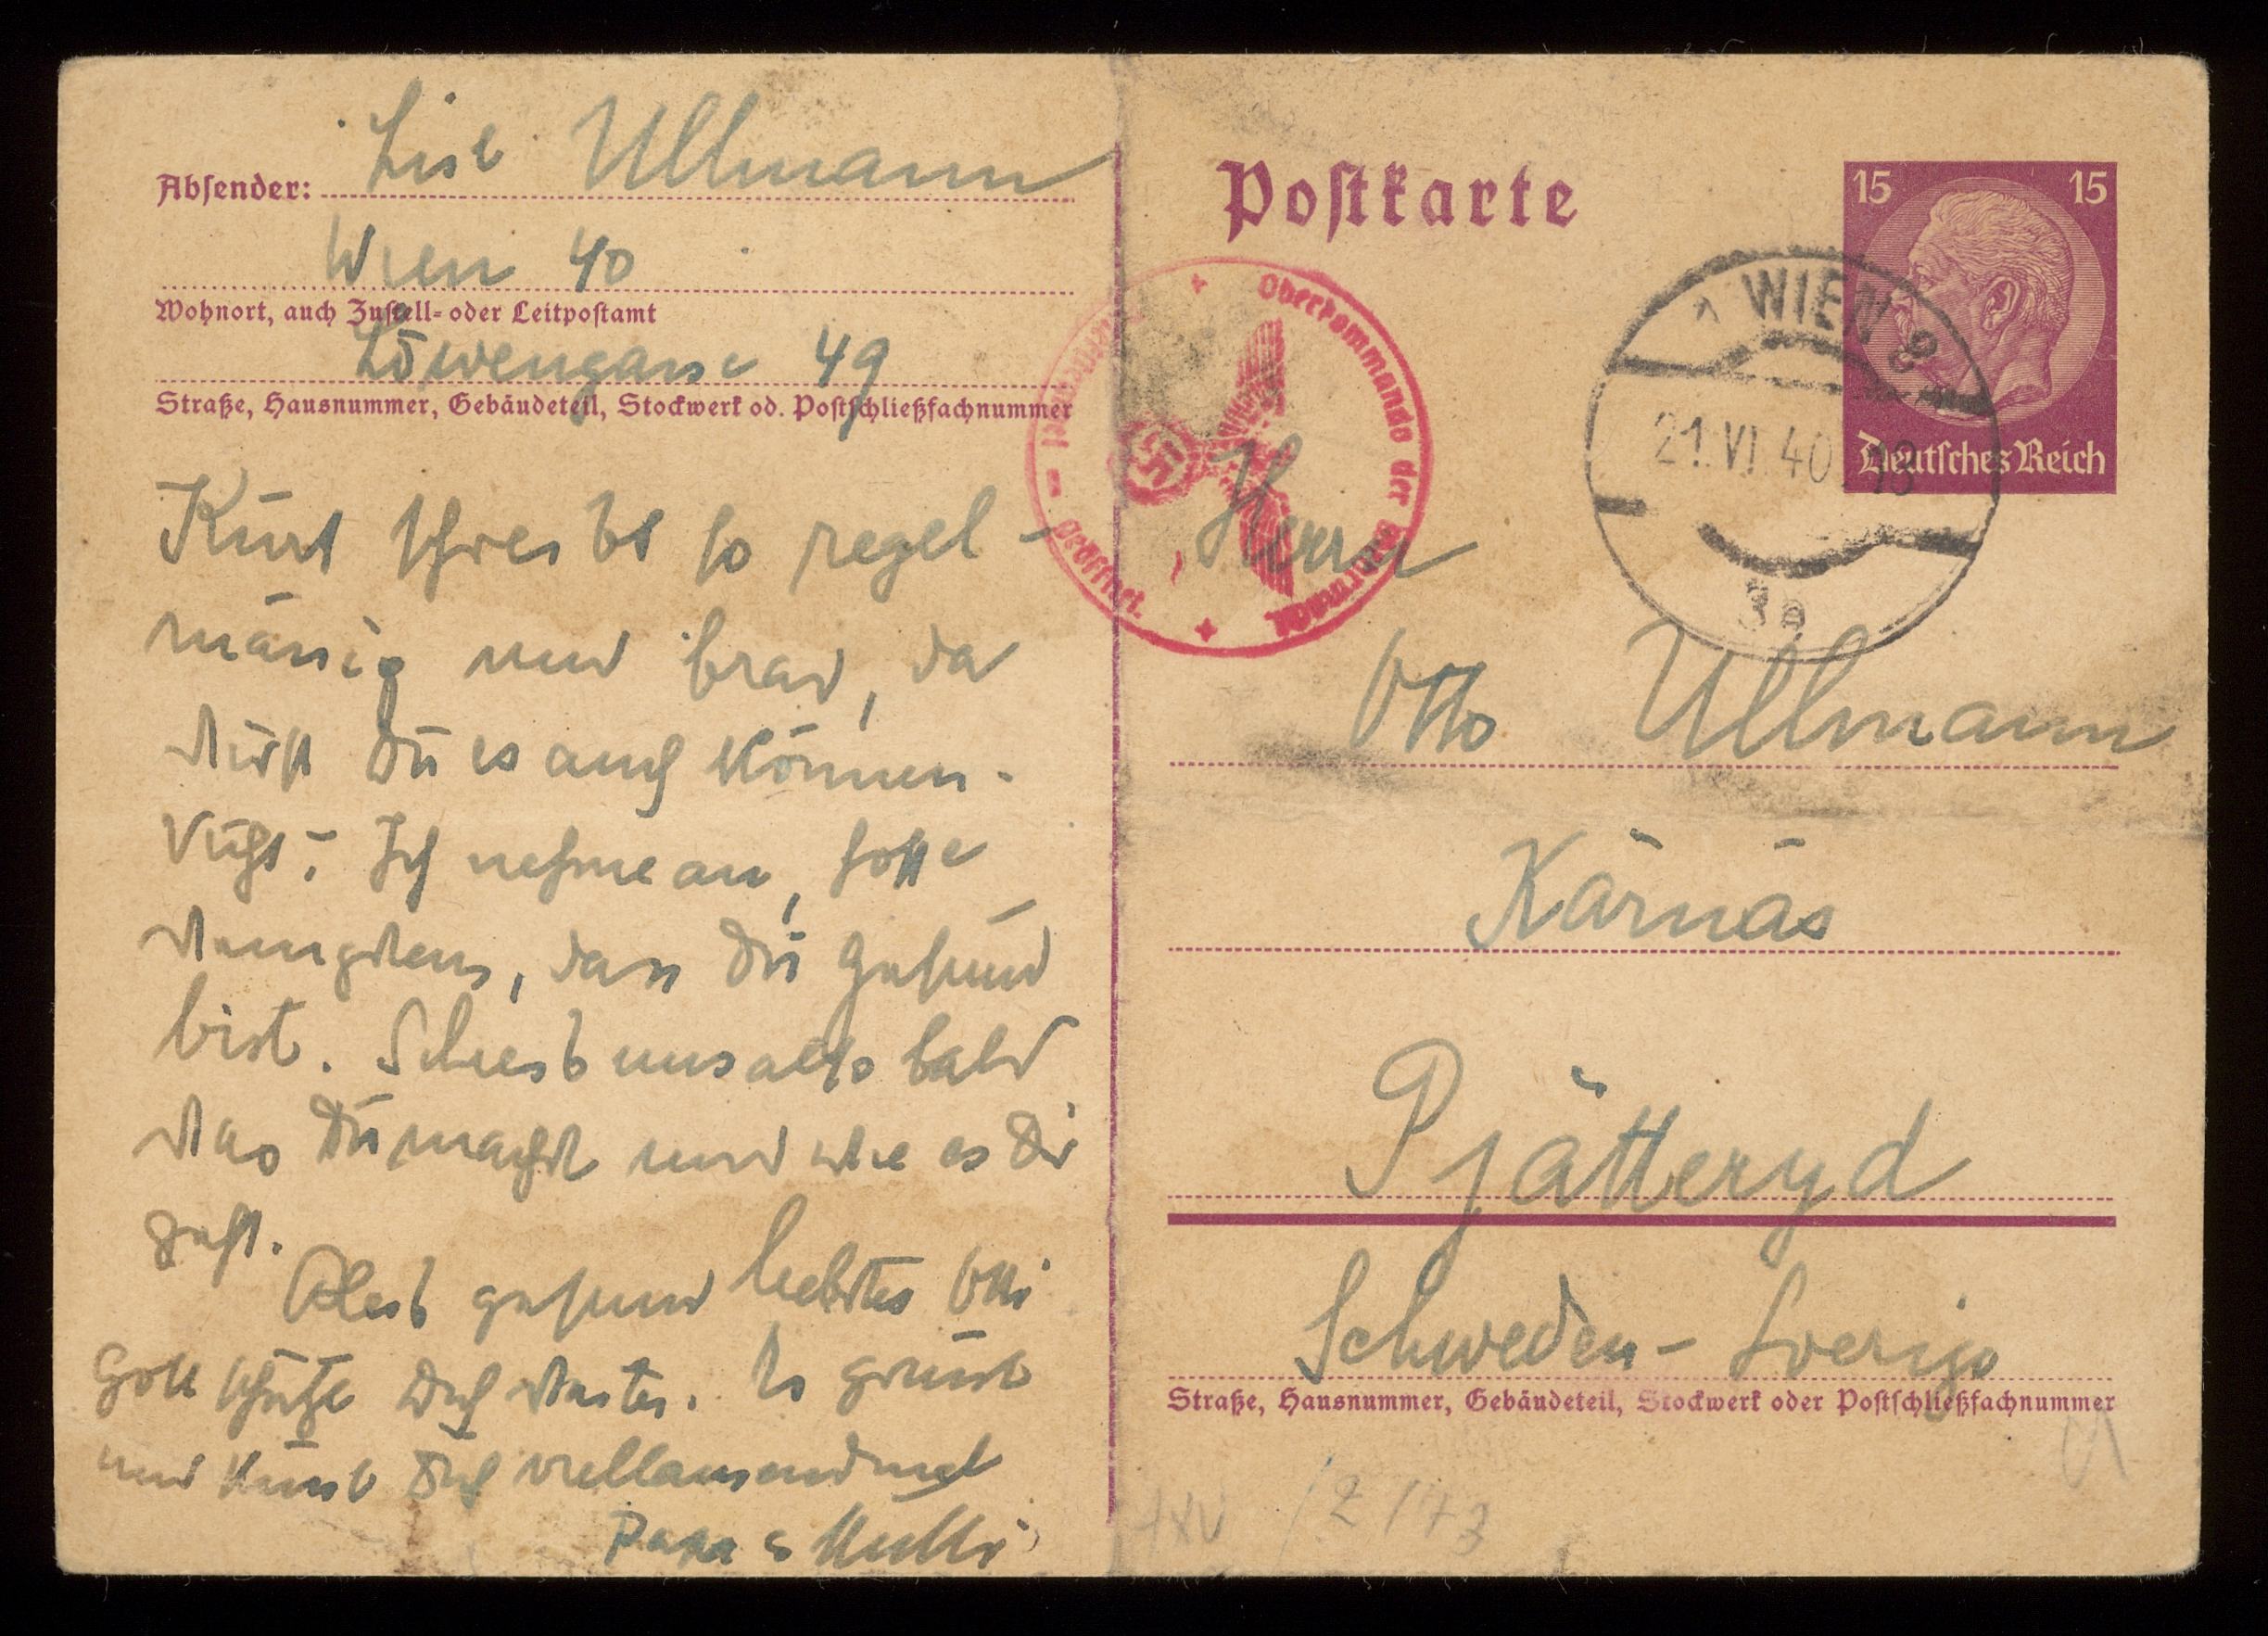 Absender: Lise Ullmann
Wien 40
Wohnort, auch Zustell- oder Leitpostamt
Löwengasse 49
Straße, Hausnummer, Gebäudeteil, Stockwerk od. Postschließfachnummer
Kurt schreibt so regel-
mässig und brav, da
wirst Du es auch können.
Nicht? Ich nehme an, hoffe
wenigstens, dass Du gesund
bist. Schreib uns also bald
was Du machst und wie es Dir
geht.
Bleib gesund liebstes Otti
Gott schütze Dich weiter. Es grüsst
und küsst Dich vieltausendmal
Papa & Mutti
Postkarte
15 15
Deutsches Reich
WIEN
21.VI.40
3a
Oberkommando der Wehrmacht
geöffnet.
Herrn
Otto Ullmann
Kärnäs
Pjätteryd
Schweden - Sverige
Straße, Hausnummer, Gebäudeteil, Stockwerk oder Postschließfachnummer